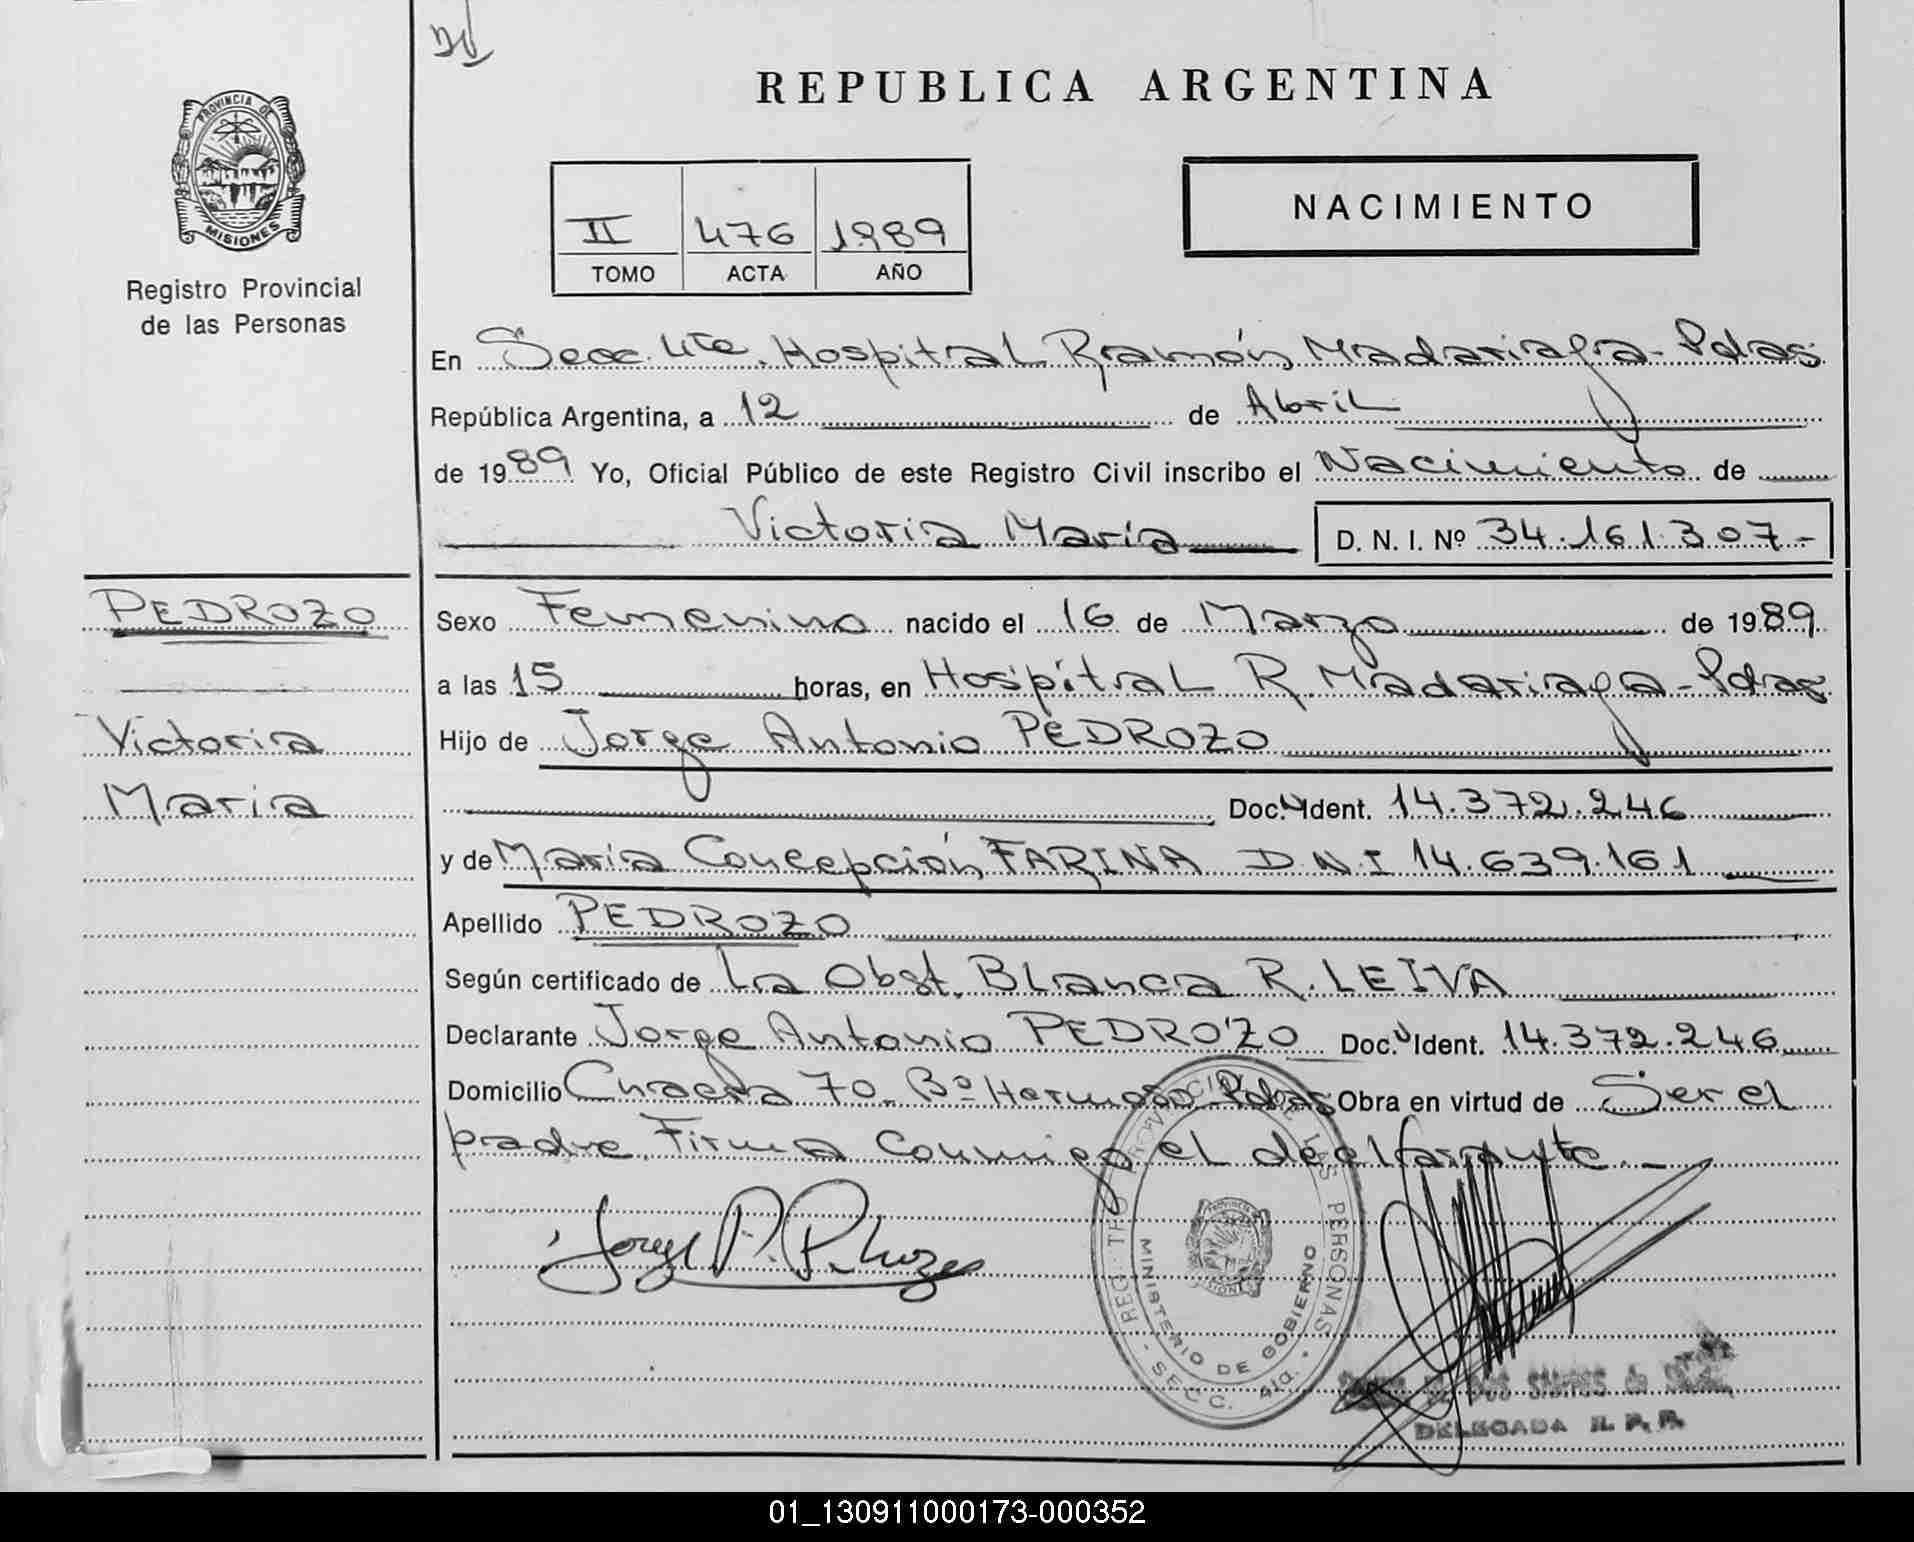 REPUBLICA ARGENTINA
PROVINCIA DE
MISIONES
Registro Provincial
de las Personas
II 476 1989
TOMO ACTA AÑO
NACIMIENTO
En Secc. 4ta. Hospital Ramón Madariaga - Pdas.
República Argentina, a 12 de Abril
de 1989 Yo, Oficial Público de este Registro Civil inscribo el Nacimiento de
Victoria María D. N. I. Nº 34.161.307-
PEDROZO
Victoria
María
Sexo Femenino nacido el 16 de Marzo de 1989
a las 15 horas, en Hospital R. Madariaga - Pdas.
Hijo de Jorge Antonio PEDROZO
Doc. Ident. 14.372.246
y de María Concepción FARINA D.N.I 14.639.161
Apellido PEDROZO
Según certificado de La Obst. Blanca R. LEIVA
Declarante Jorge Antonio PEDROZO Doc. Ident. 14.372.246
Domicilio 70 - Bº Hermoso Pdas Obra en virtud de Ser el
padre. Firma conmigo el declarante. -
REG. PROVINCIAL DE LAS PERSONAS
MINISTERIO DE GOBIERNO
- SECC. 4ta. -
DELEGADA R. P. P.
01_130911000173-000352